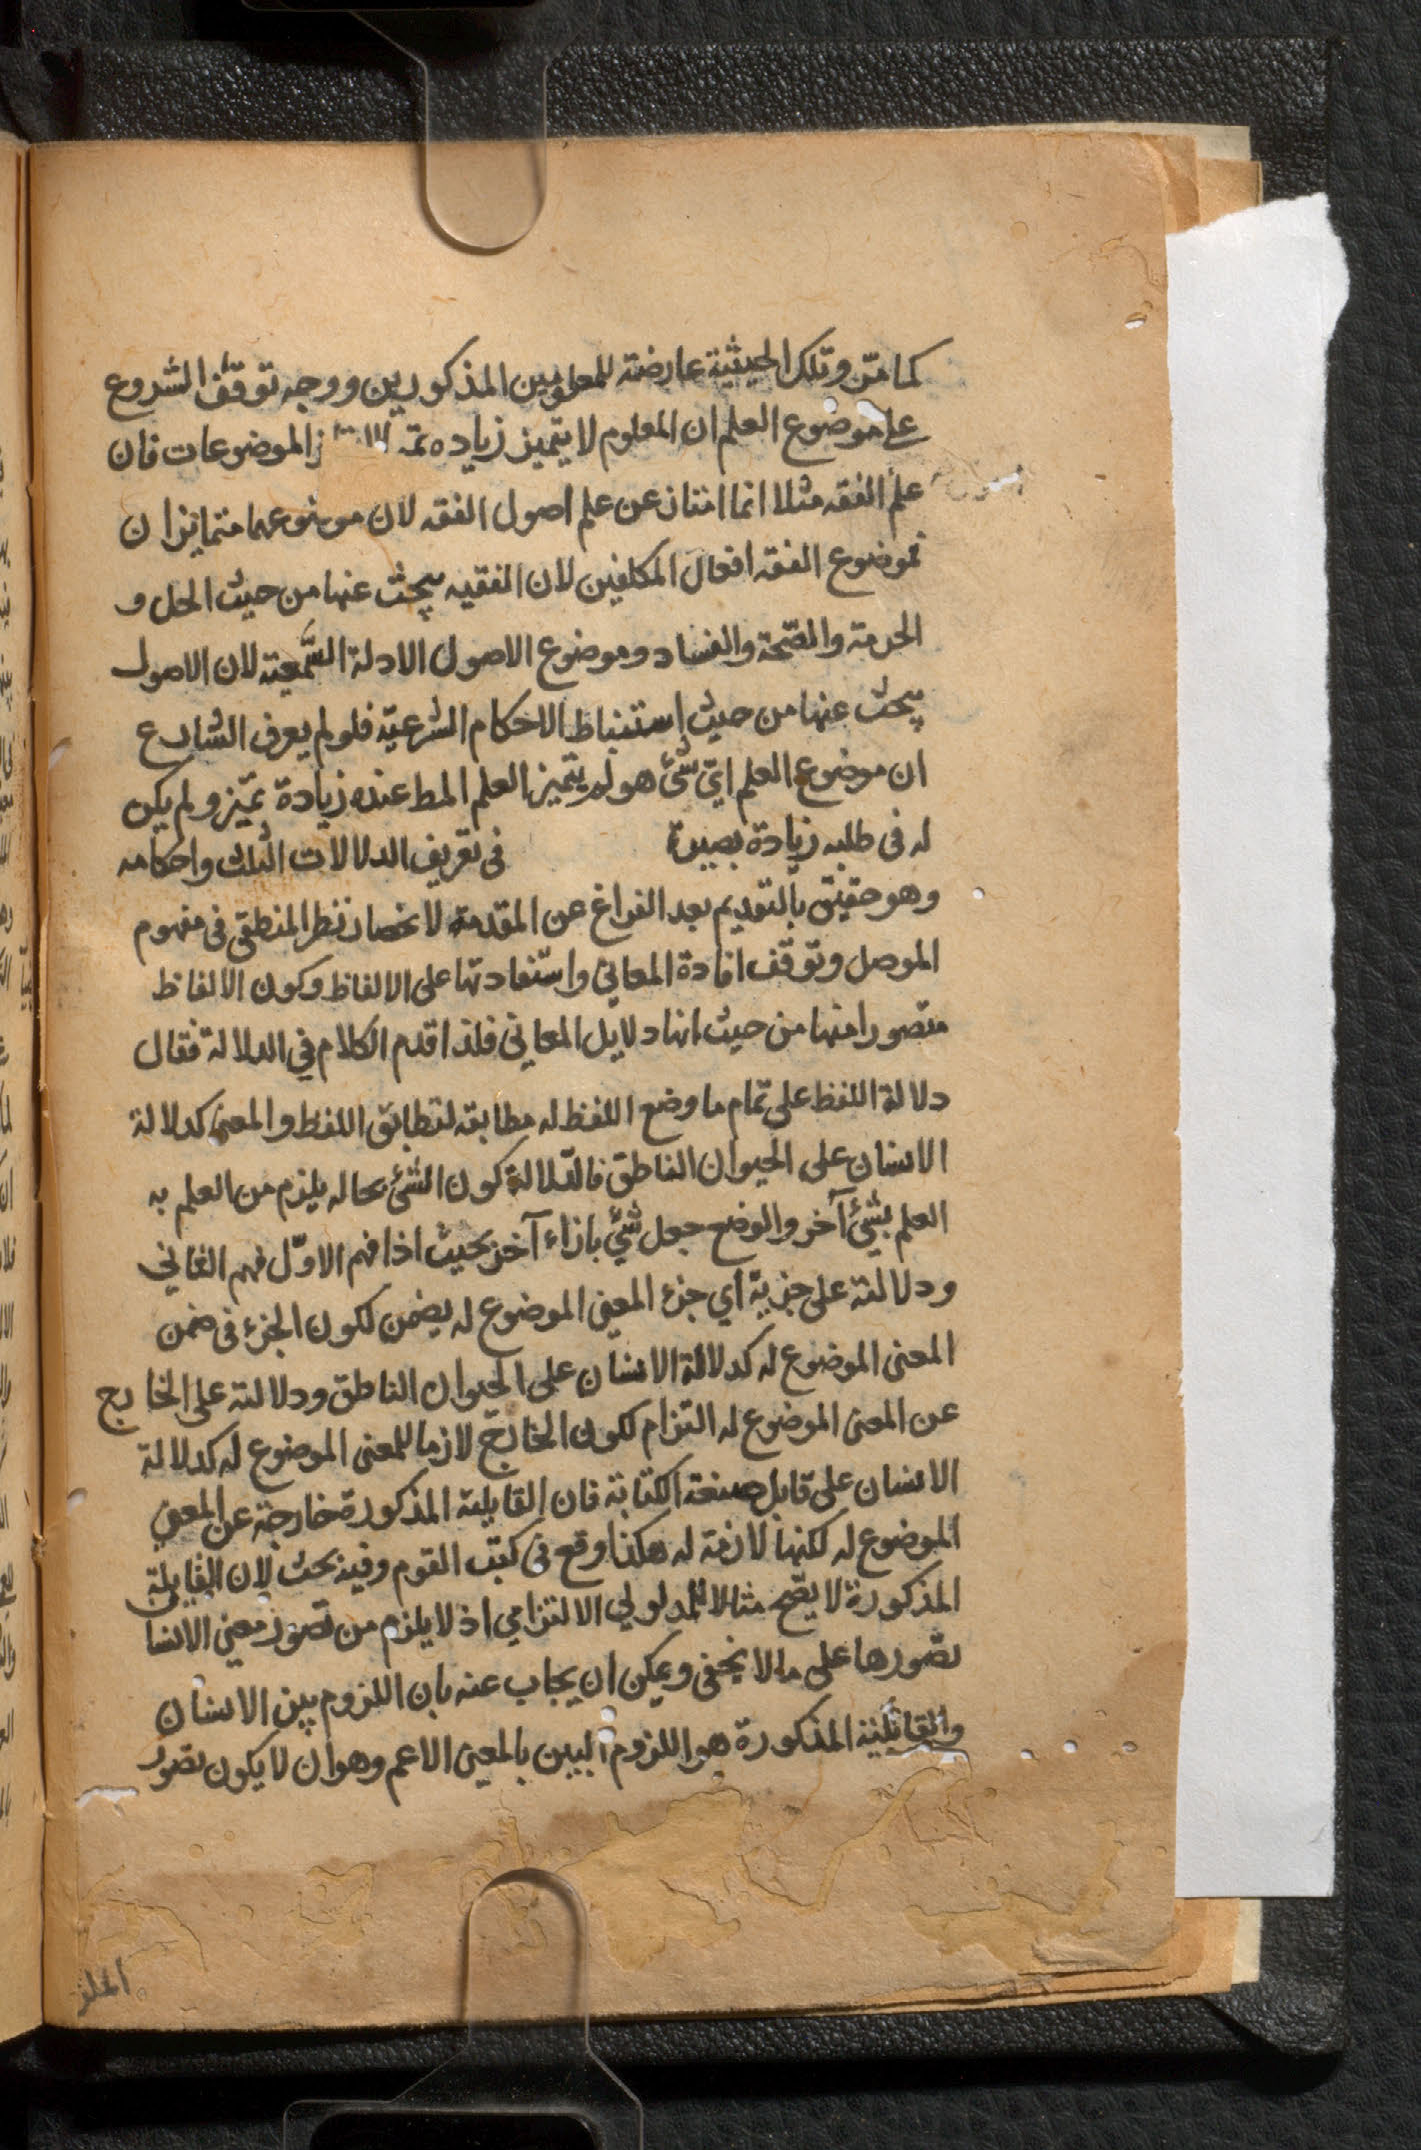 كما مرّ وتلك الحيثية عارضة للمعلومين المذكورين ووجه توقف الشروع
على موضوع العلم ان المعلوم لا يتميز زيادة الموضوعات فان
علم الفقه مثلا انما امتاز عن علم اصول الفقه لان موضوعهما متمايزان
فموضوع الفقه افعال المكلفين لان الفقيه يبحث عنها من حيث الحل و
الحرمة والصّحة والفساد وموضوع الاصول الادلة السّمعية لان الاصول
يبحث عنها من حيث استنباط الاحكام الشرعيّة فلو لم يعرف الشارع
ان موضوع العلم ايّ شئ هو لم يتميز العلم المط عنده زيادة تميّز ولم يكن
له فى طلبه زيادة بصيرة فى تعريف الدلالات الثلث واحكامه
وهو حقيق بالتقديم بعد الفراغ عن المقدمة لانحصار نظر المنطقى فى مفهوم
الموصل وتوقّف افادة المعاني واستفادتها على الالفاظ وكون الالفاظ
متصورا منها من حيث انها دلايل المعانى فلذا قدم الكلام في الدلالة فقال
دلالة اللفظ على تمام ما وضع اللفظ له مطابقه لتطابق اللفظ والمعنى كدلالة
الانسان على الحيوان الناطق فالدّلالة كون الشئ بحاله يلزم من العلم به
العلم بشئ آخر والوضع جعل شئ بازاء آخر بحيث اذا فهم الاوّل فهم الثاني
ودلالته على جزيه اي جزء المعنى الموضوع له يضمن لكون الجزء فى ضمن
المعنى الموضوع له كدلالة الانسان على الحيوان الناطق ودلالته على الخارج
عن المعنى الموضوع له التزام لكون الخارج لازما للمعنى الموضوع له كدلالة
الانسان على قابل صنعة الكتابة فان القابلية المذكورة خارجة عن المعنى
الموضوع له لكنها لازمة له هكذا وقع فى كتب القوم وفيه بحث لان القابلية
المذكورة لا يصّح مثالا للمدلولى الالتزامي اذ لا يلزم من تصور معنى الانسا
تصورها على ما لا يخفى ويمكن ان يجاب عنه بان اللزوم بين الانسان
والقابلية المذكورة هو اللزوم البين بالمعنى الاعم وهو ان لا يكون تصور